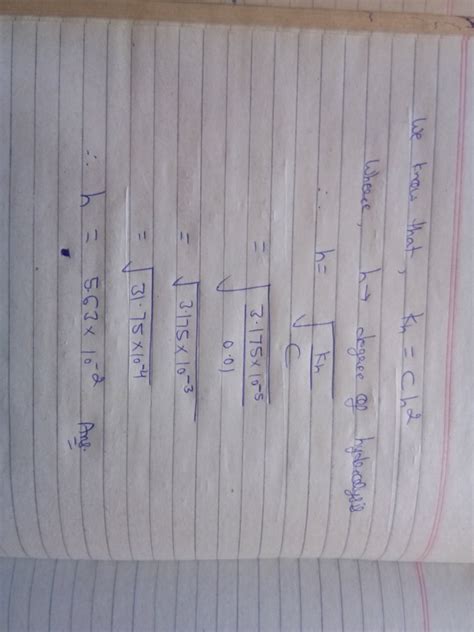 We know that, Kh = Ch²
Where, h → degree of hydrolysis
∴ h = √(Kh/C)
= √(3.175 × 10⁻⁵/0.01)
= √(3.175 × 10⁻³)
= √(31.75 × 10⁻⁴)
∴ h = 5.63 × 10⁻² Ans.